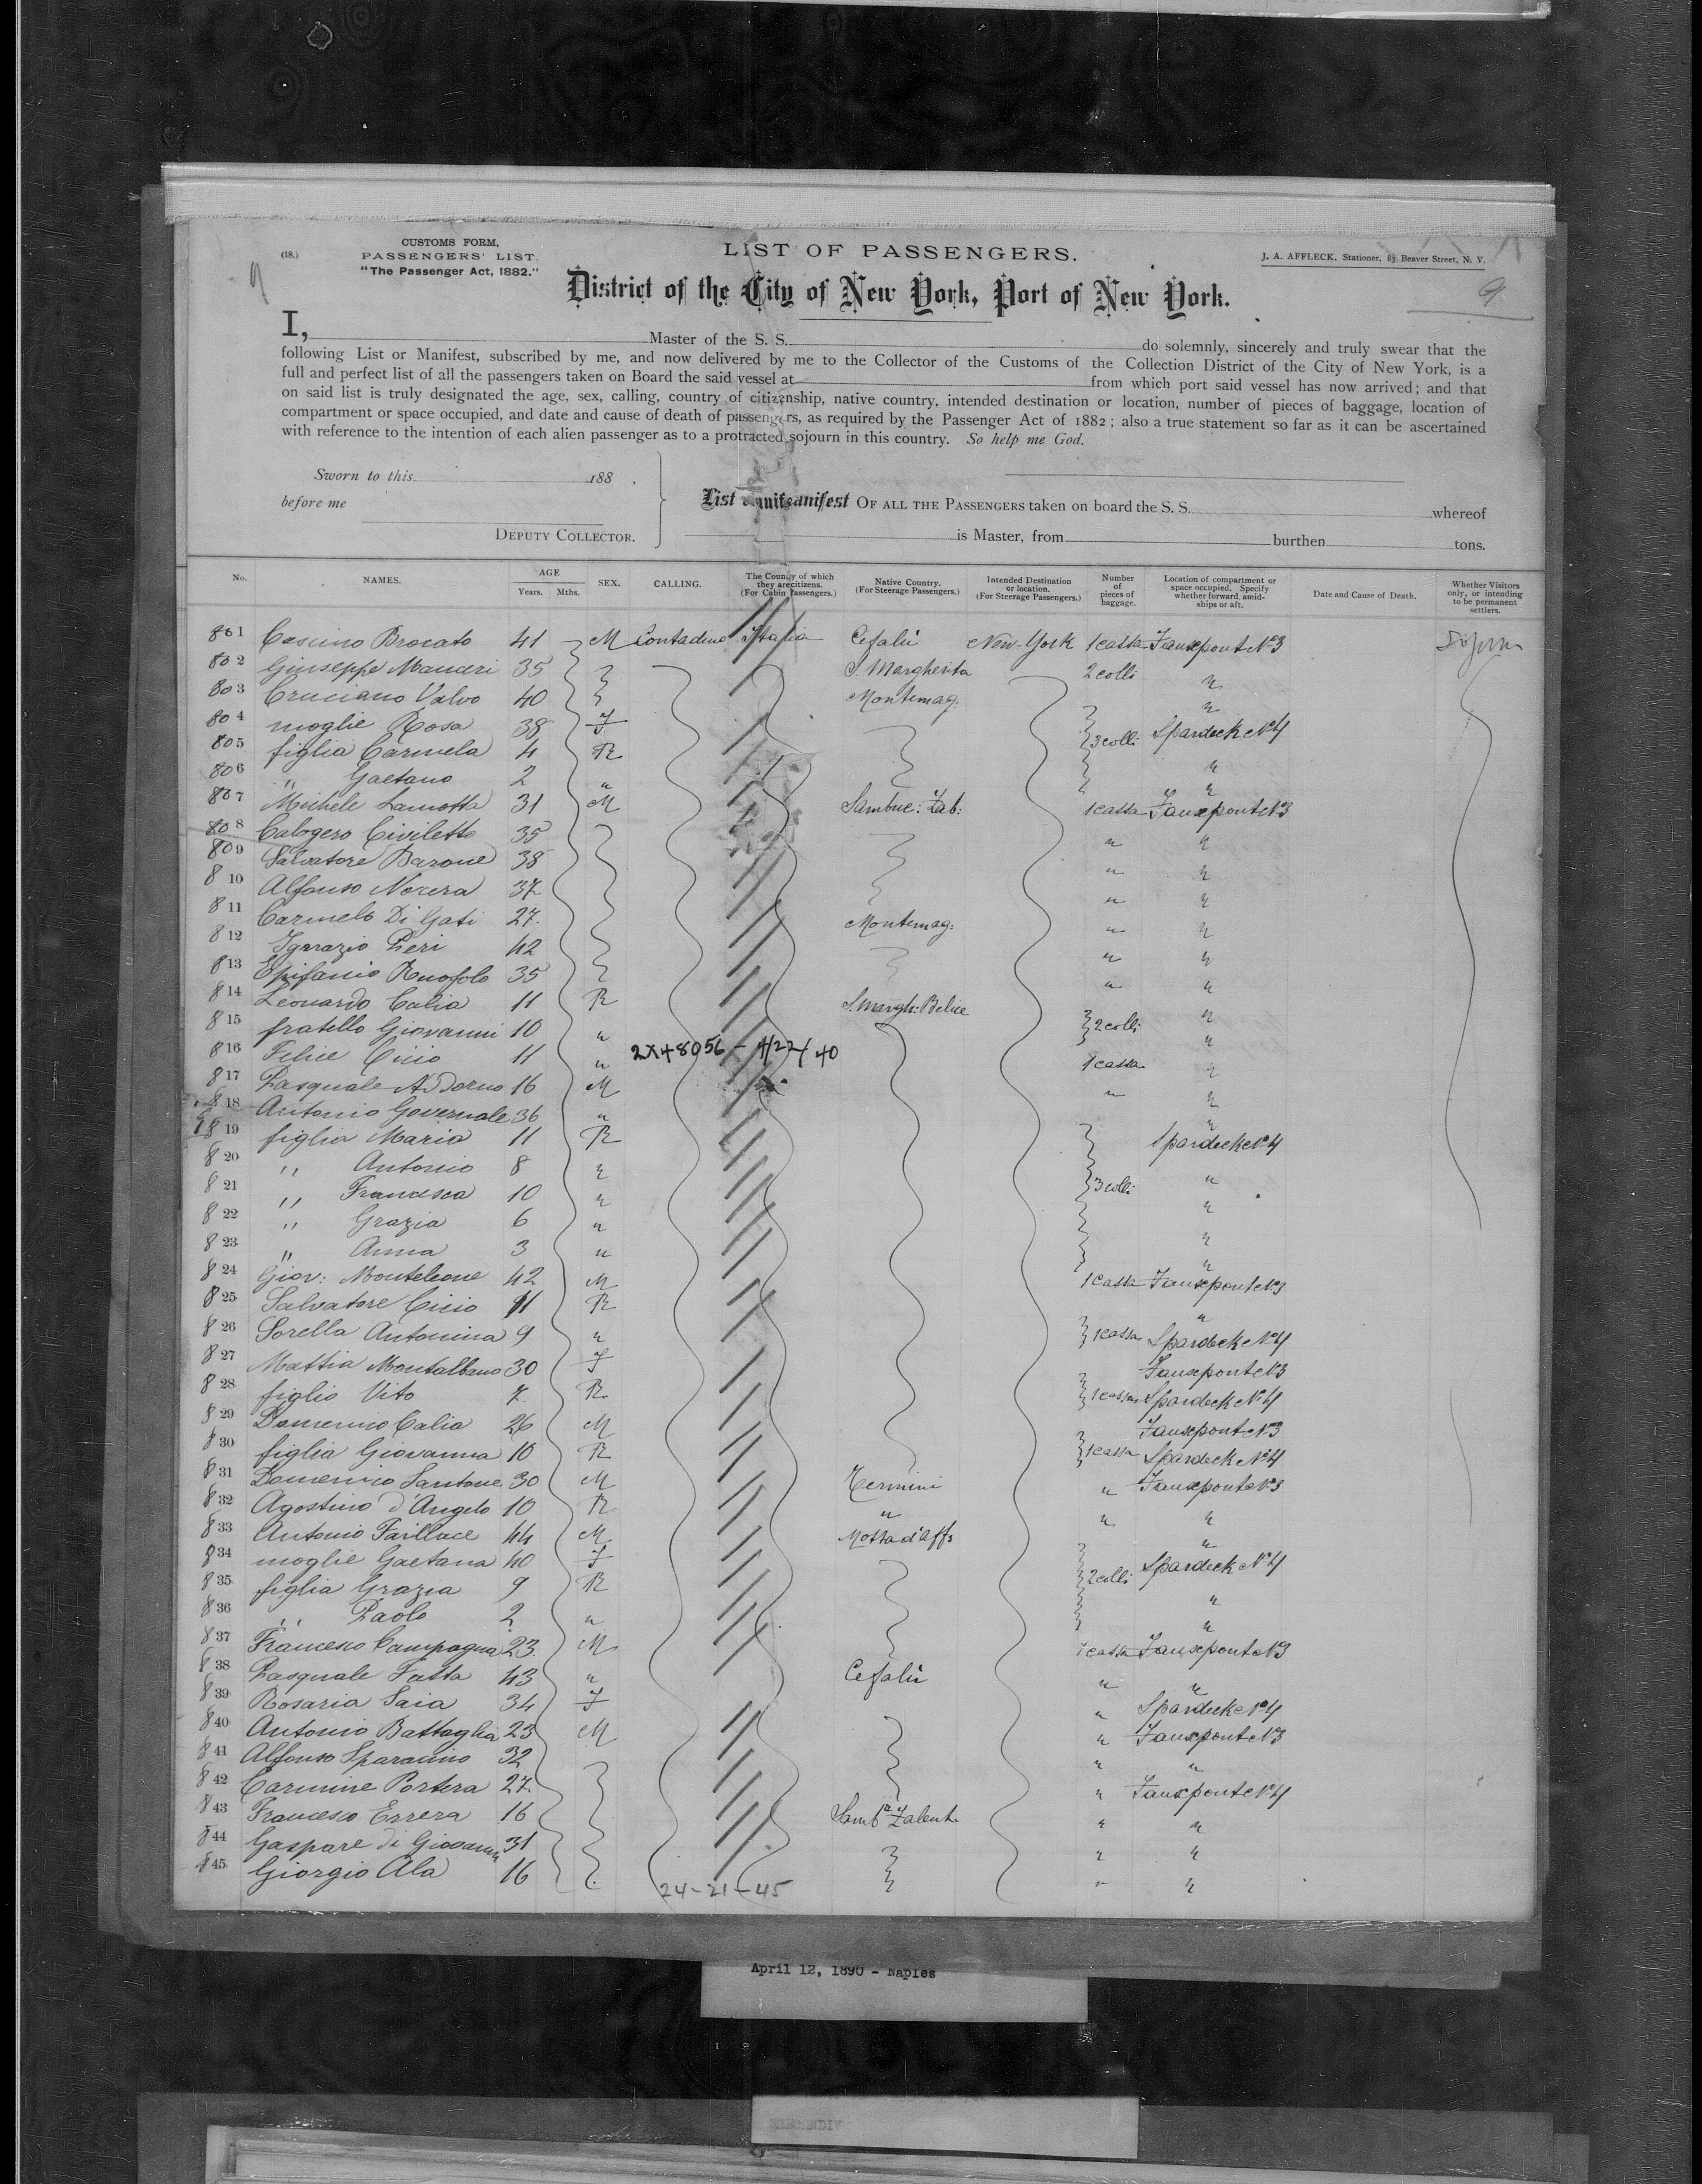 (18.)
CUSTOMS FORM,
PASSENGERS' LIST.
"The Passenger Act, 1882."
LIST OF PASSENGERS.
J. A. AFFLECK, Stationer, 83 Beaver Street, N. Y.
9
9
District of the City of New York, Port of New York.
I, Master of the S. S. do solemnly, sincerely and truly swear that the
following List or Manifest, subscribed by me, and now delivered by me to the Collector of the Customs of the Collection District of the City of New York, is a
full and perfect list of all the passengers taken on Board the said vessel at from which port said vessel has now arrived; and that
on said list is truly designated the age, sex, calling, country of citizenship, native country, intended destination or location, number of pieces of baggage, location of
compartment or space occupied, and date and cause of death of passengers, as required by the Passenger Act of 1882; also a true statement so far as it can be ascertained
with reference to the intention of each alien passenger as to a protracted sojourn in this country. So help me God.
Sworn to this 188 .
before me
DEPUTY COLLECTOR.
List OF ALL THE PASSENGERS taken on board the S. S. whereof
is Master, from burthen tons.
No. NAMES. AGE Years. Mths. SEX. CALLING. The County of which they are citizens. (For Cabin Passengers.) Native Country. (For Steerage Passengers.) Intended Destination or location. (For Steerage Passengers.) Number of pieces of baggage. Location of compartment or space occupied. Specify whether forward, amidships or aft. Date and Cause of Death. Whether Visitors only, or intending to be permanent settlers.
801 Cascino Brocato 41 M Contadino Italia Cefalù New-York 1 cassa Fauxpont N3
802 Giuseppe Manceri 35 S Margherita 2 colli "
803 Cruciano Valvo 40 Montemag: "
804 moglie Rosa 38 F Spardeck N4
805 figlia Carmela 4 R 3 colli "
806 " Gaetano 2 " "
807 Michele Lamotta 31 M Sambuc: Zab: 1 cassa Fauxpont N3
808 Calogero Civiletto 35 " "
809 Salvatore Barone 38 " "
810 Alfonso Nocera 37 " "
811 Carmelo Di Gati 27 Montemag: " "
812 Ignazio Pieri 42 " "
813 Epifanio Ruofolo 35 " "
814 Leonardo Calia 11 R S. Margh: Belice "
815 fratello Giovanni 10 " 2 colli "
816 Felice Cicio 11 " 2X48056 - 4/22/40 1 cassa "
817 Pasquale Addorno 16 M " "
818 Antonio Governale 36 " "
819 figlia Maria 11 R Spardeck N4
820 " Antonio 8 " "
821 " Francesca 10 " 3 colli "
822 " Grazia 6 " "
823 " Anna 3 " "
824 Giov: Monteleone 42 M 1 cassa Fauxpont N3
825 Salvatore Cicio 11 R "
826 Sorella Antonina 9 " 1 cassa Spardeck N4
827 Mattia Montalbano 30 F Fauxpont N3
828 figlio Vito 7 R 1 cassa Spardeck N4
829 Domenico Calia 26 M Fauxpont N3
830 figlia Giovanna 10 R 1 cassa Spardeck N4
831 Domenico Santone 30 M Termini " Fauxpont N3
832 Agostino d'Angelo 10 R " " "
833 Antonio Faillace 44 M Motta d'Affo "
834 moglie Gaetana 40 F Spardeck N4
835 figlia Grazia 9 R 2 colli "
836 " Paolo 2 " "
837 Francesco Campagna 23 M 1 cassa Fauxpont N3
838 Pasquale Fatta 43 " Cefalù " "
839 Rosaria Saia 34 F " Spardeck N4
840 Antonio Battaglia 23 M " Fauxpont N3
841 Alfonso Sparacino 32 " "
842 Carmine Portera 27 " Fauxpont N4
843 Francesco Errera 16 Samb Zabent " "
844 Gaspare di Giovanni 31 " "
845 Giorgio Ala 16 " "
24-21-45
April 12, 1890 - Naples